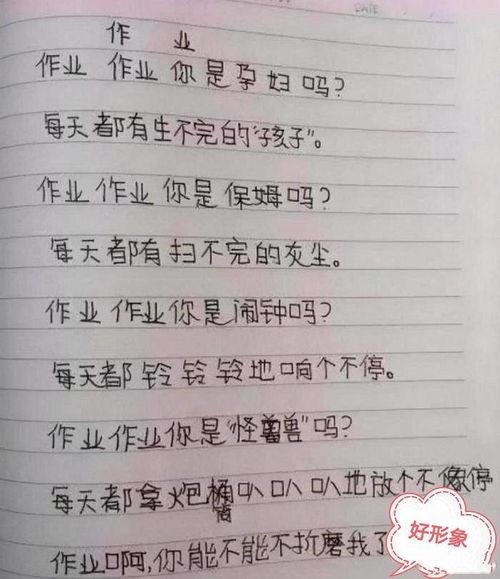 DATE
作 业
作业 作业你是孕妇吗?
每天都有生不完的“孩子”。
作业作业你是保姆吗?
每天都有扫不完的灰尘。
作业作业你是闹钟吗?
每天都铃铃铃地响个不停。
作业作业你是“怪兽”吗?
每天都拿火炮筒叭叭叭地放个不停
作业啊,你能不能不折磨我了
好形象